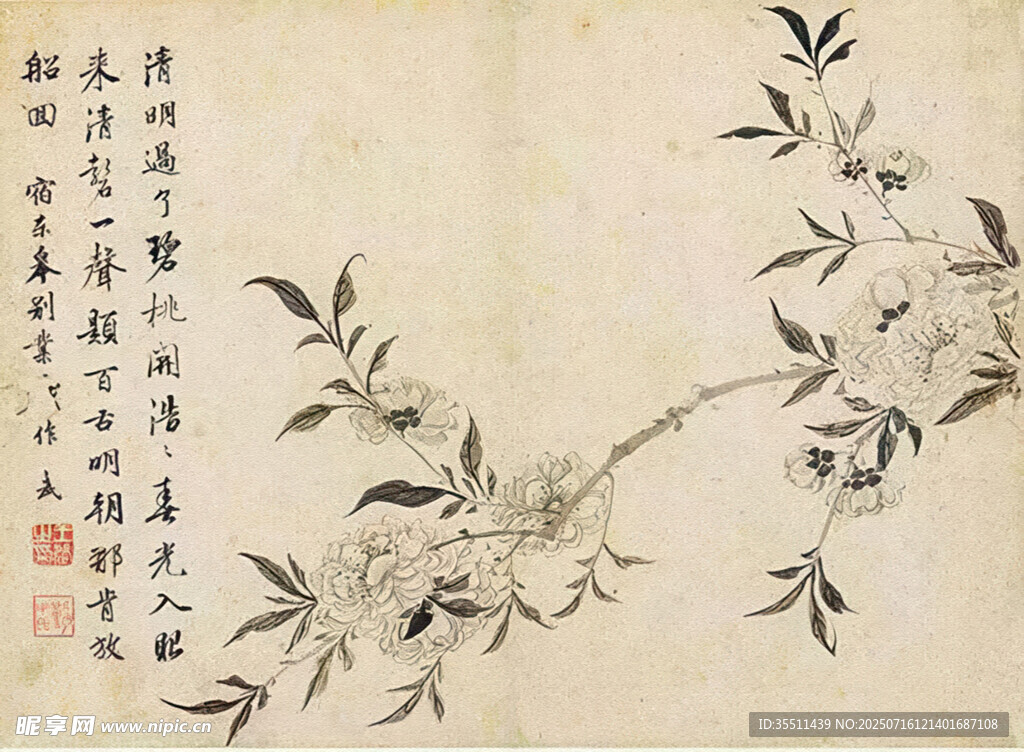 清明過了碧桃開浩〻春光入眼
来清磬一聲百明朝那肯放
船回 宿东皋别業作 武
昵享网 www.nipic.cn
ID:35511439 NO:20250716121401687108